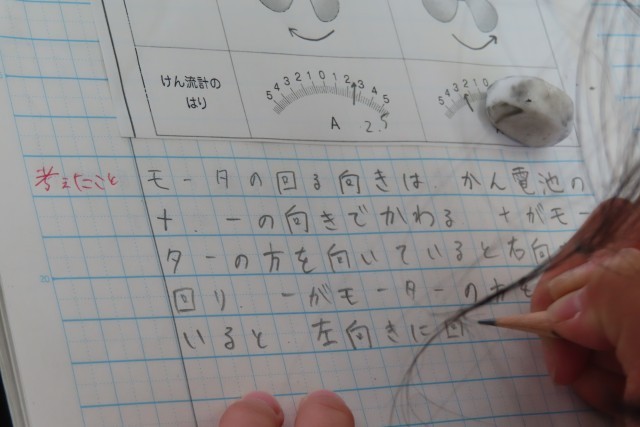 けん流計の
はり
5 4 3 2 1 0 1 2 3 4 5
A 2.5
5 4 3 2 1 0
考えたこと
モータの回る向きは、かん電池の
＋、－の向きでかわる ＋がモー
ターの方を向いていると右向
回り、－がモーターの方を
いると、左向きに回